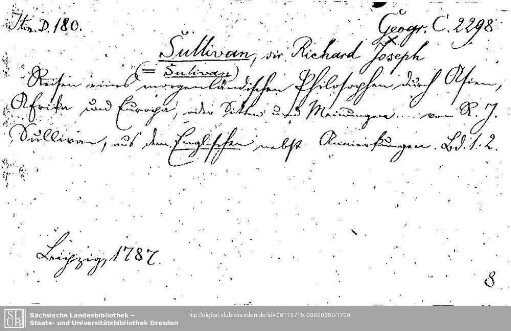 It. D. 180.
Geogr. C. 2298
Sullivan, sir Richard Joseph
(= Sulivan)
Reisen eines morgenländischen Philosophen durch Asien,
Afrika und Europa, oder Sitten und Meinungen ... von R. J.
Sullivan, aus dem Englischen nebst Anmerkungen. Bd. 1. 2.
Leipzig, 1787.
8
Sächsische Landesbibliothek –
Staats- und Universitätsbibliothek Dresden